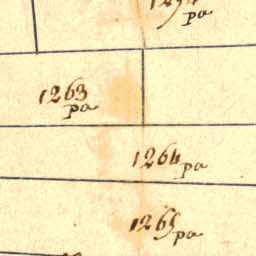 pa
1263
pa
1264
pa
1265
pa